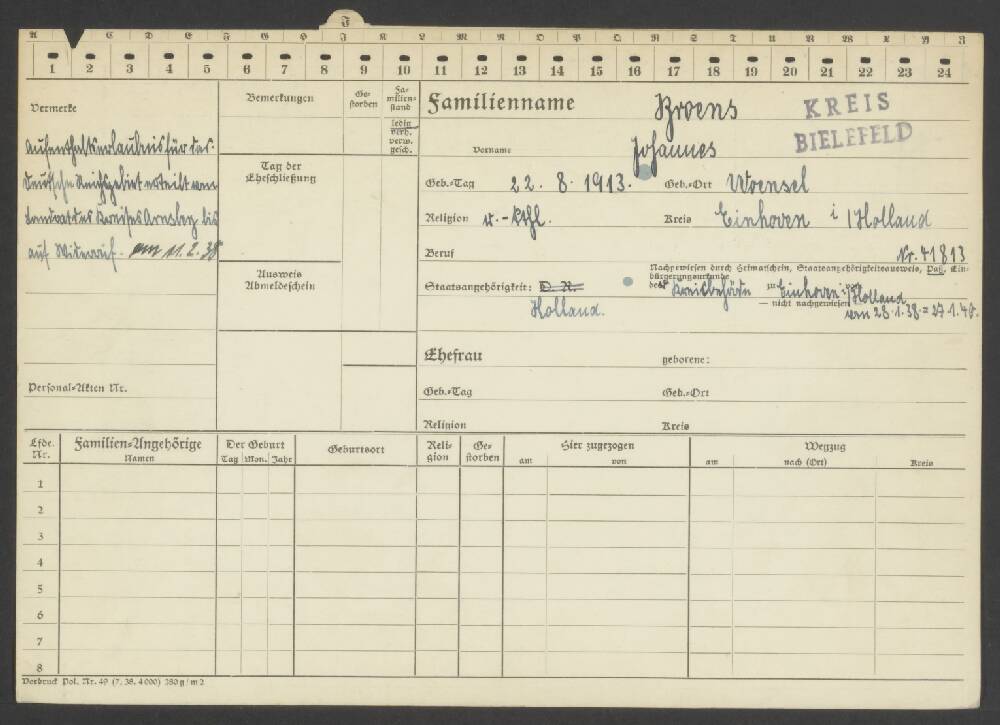 F
A C D E F G H J K L M N O P Q R S T U V W X Y Z
1 2 3 4 5 6 7 8 9 10 11 12 13 14 15 16 17 18 19 20 21 22 23 24
Vermerke
Aufenthaltserlaubnis für das
Deutsche Reichsgebiet erteilt vom
Landrat des Kreises Arnsberg bis
auf Widerruf. am 11.2.38
Personal-Akten Nr.
Bemerkungen
Ge-
storben
Fa-
milien-
stand
ledig
verh.
verw.
gesch.
Tag der
Eheschließung
Ausweis
Abmeldeschein
Familienname
KREIS
BIELEFELD
Vorname Johannes
Geb.-Tag 22. 8. 1913. Geb.-Ort Woensel
Religion r.-kthl. Kreis Einhoven i/Holland
Beruf Nr. 41813
Nachgewiesen durch Heimatschein, Staatsangehörigkeitsausweis, Paß, Ein-
bürgerungsurkunde
Staatsangehörigkeit: D. R. der zu Einhoven i/Holland
— nicht nachgewiesen
Holland. vom 28.1.38.=27.1.40.
Ehefrau geborene:
Geb.-Tag Geb.-Ort
Religion Kreis
Lfde.
Nr.
Familien-Angehörige
Namen
Der Geburt
Tag Mon. Jahr
Geburtsort
Reli-
gion
Ge-
storben
Hier zugezogen
am von
Wegzug
am nach (Ort) Kreis
1
2
3
4
5
6
7
8
Vordruck Pol. Nr. 49 (7. 38. 4000) 280 g/m2